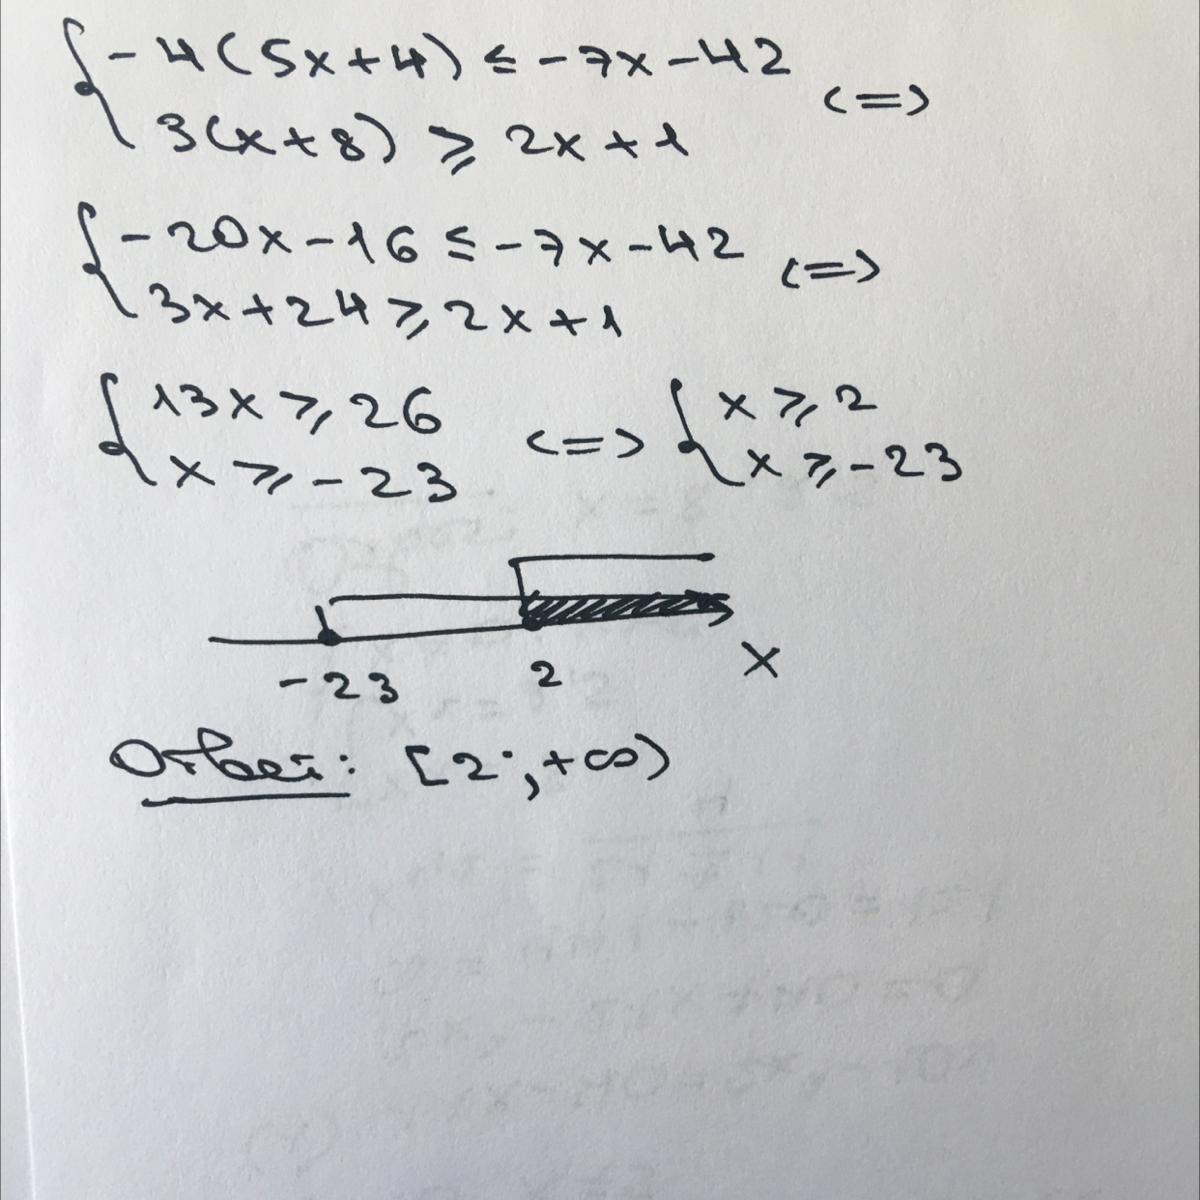 { -4(5x+4) ≤ -7x-42
3(x+8) ⩾ 2x+1 <=>
{ -20x-16 ≤ -7x-42
3x+24 ⩾ 2x+1 <=>
{ 13x ⩾ 26
x ⩾ -23 <=> { x ⩾ 2
x ⩾ -23
-23 2 x
Ответ: [2; +∞)